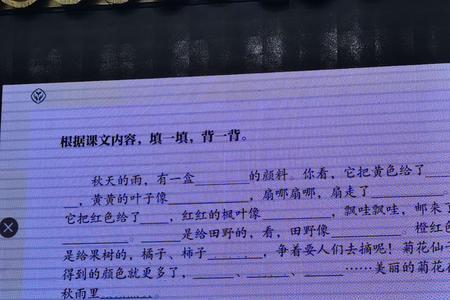 根据课文内容，填一填，背一背。
秋天的雨，有一盒______的颜料。你看，它把黄色给了
______，黄黄的叶子像________，扇哪扇哪，扇走了________。
它把红色给了____，红红的枫叶像________，飘哇飘哇，邮来了
________。______是给田野的，看，田野像________。橙红色
是给果树的，橘子、柿子________，争着要人们去摘呢！菊花仙子
得到的颜色就更多了，______、______、____……美丽的菊花在
秋雨里________